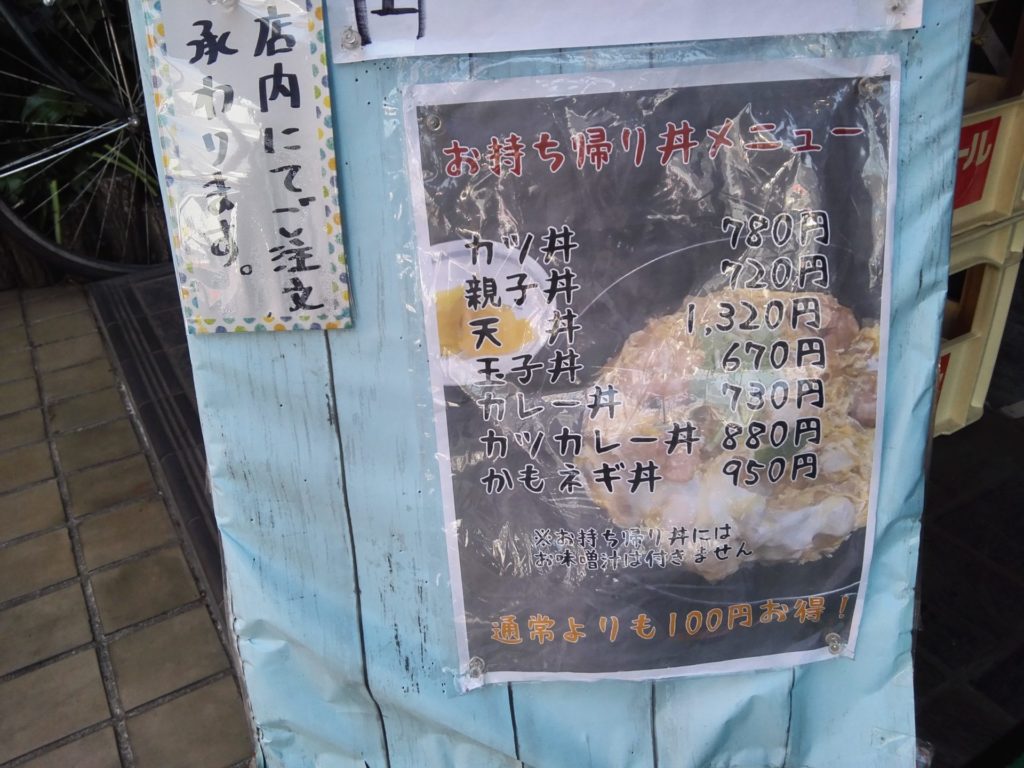 店内にてご注文
承わります。
お持ち帰り丼メニュー
カツ丼 780円
親子丼 720円
天丼 1,320円
玉子丼 670円
カレー丼 730円
カツカレー丼 880円
かもネギ丼 950円
※お持ち帰り丼には
お味噌汁は付きません
通常よりも100円お得!
ール